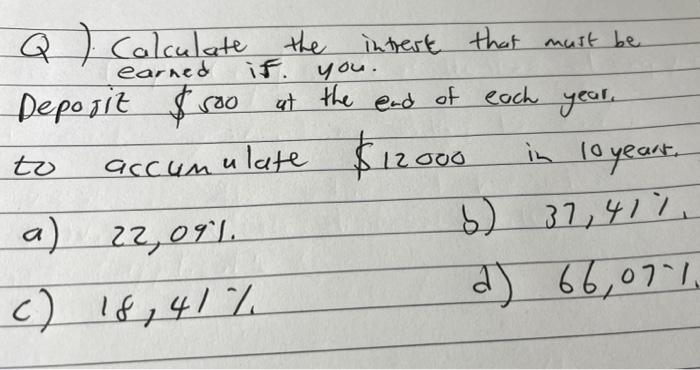 Q ) Calculate the intrest that must be
earned if. you.
Deposit $500 at the end of each year.
to accumulate $12000 in 10 years.
a) 22,09%. b) 37,41%.
c) 18,41% d) 66,07%.